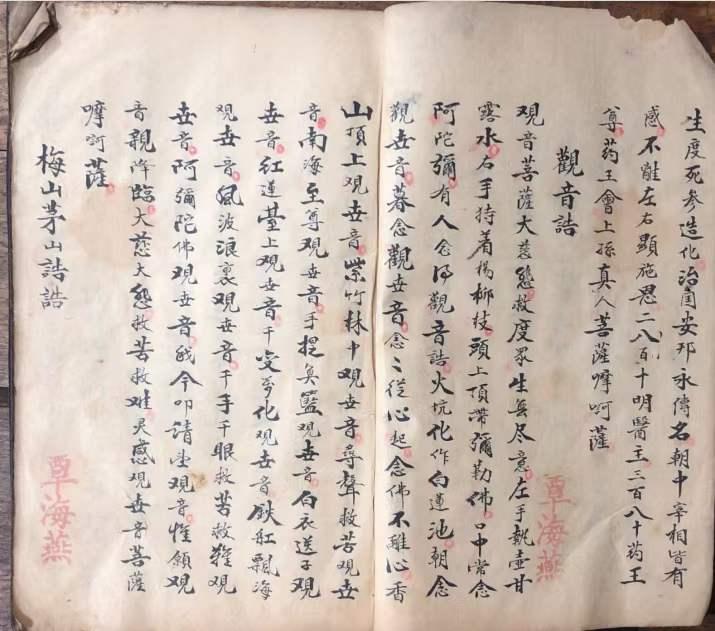 生度死参造化治国安邦永傳名朝中宰相皆有
感不離左右顯施恩二八百十明醫主三百八十药王
尊药王會上孫真人菩薩摩啊薩
觀音誥
观音菩薩大慈悲救度眾生無尽意左手執壶甘
露水右手持着楊柳枝頭上頂帶彌勒佛口中常念
阿陀彌有人念得觀音誥火坑化作白蓮池朝念
觀世音暮念觀世音念〻從心起念佛不離心香
山頂上观世音紫竹林中观世音尋聲救苦观世
音南海至尊观世音手提魚籃观世音白衣送子观
世音红蓮臺上观世音千变万化观世音鉄舡飄海
观世音風波浪裏观世音千手千眼救苦救難观
世音阿彌陀佛观世音我今叩請世观音惟願观
音親降臨大慈大悲救苦救难灵感观世音菩薩
嚤啊薩
梅山茅山誥誥
覃海燕
覃海燕